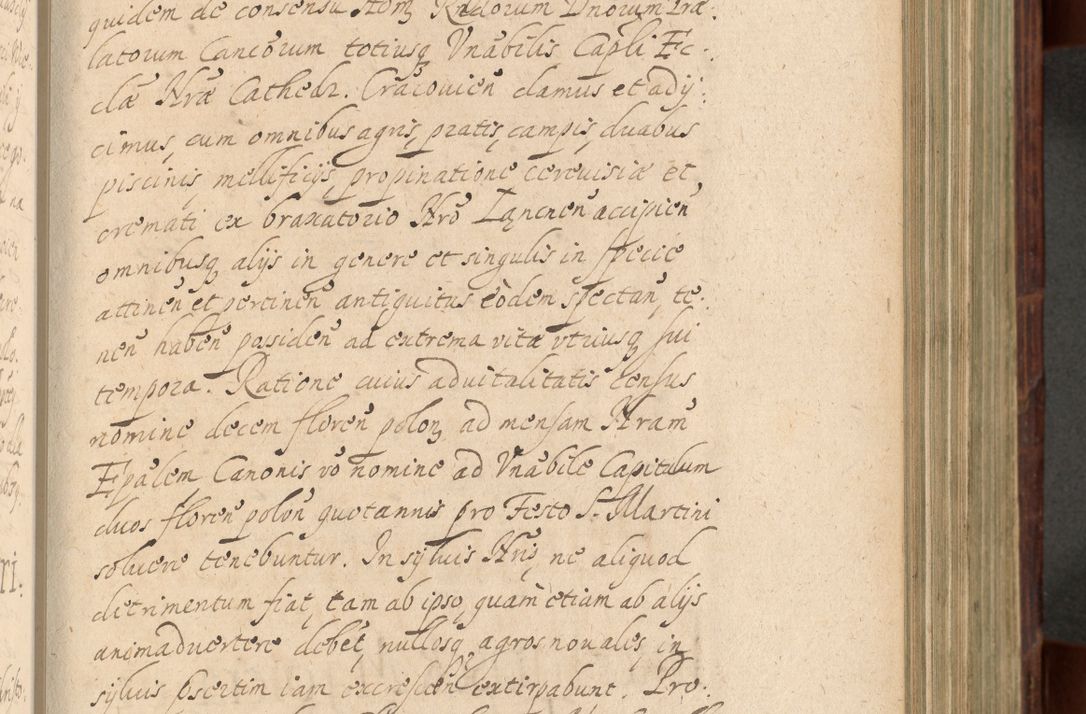 quidem de consensu Hom Rndorum Dnorum Præ:
latorum Cancorum totiusq Vnabilis Capli Ec:
clæ Nræ Cathedr. Cracouien damus et adij:
cimus, cum omnibus agris, pratis, campis, duabus
piscinis, mellificijs, propinatione cereuisiæ et
cremati ex braxatorio Nro Łąncnen accipien
omnibusq alijs in genere et singulis in specie
attinen et pertinen antiquitus eòdem spectan, te:
nen haben possiden ad extrema vitæ vtriusq sui
tempora. Ratione cuius aduitalitatis census
nomine decem floren polon ad mensam Nram
Epalem Canonis vo nomine ad Vnabile Capitulum
duos floren polon quotannis pro Festo S. Martini
soluere tenebuntur. In syluis Nris, ne aliquod
detrimentum fiat, tam ab ipso, quam etiam ab alijs
animaduertere debet, nullosq agros nouales, in
syluis psertim iam excrescen extirpabunt. Pro: